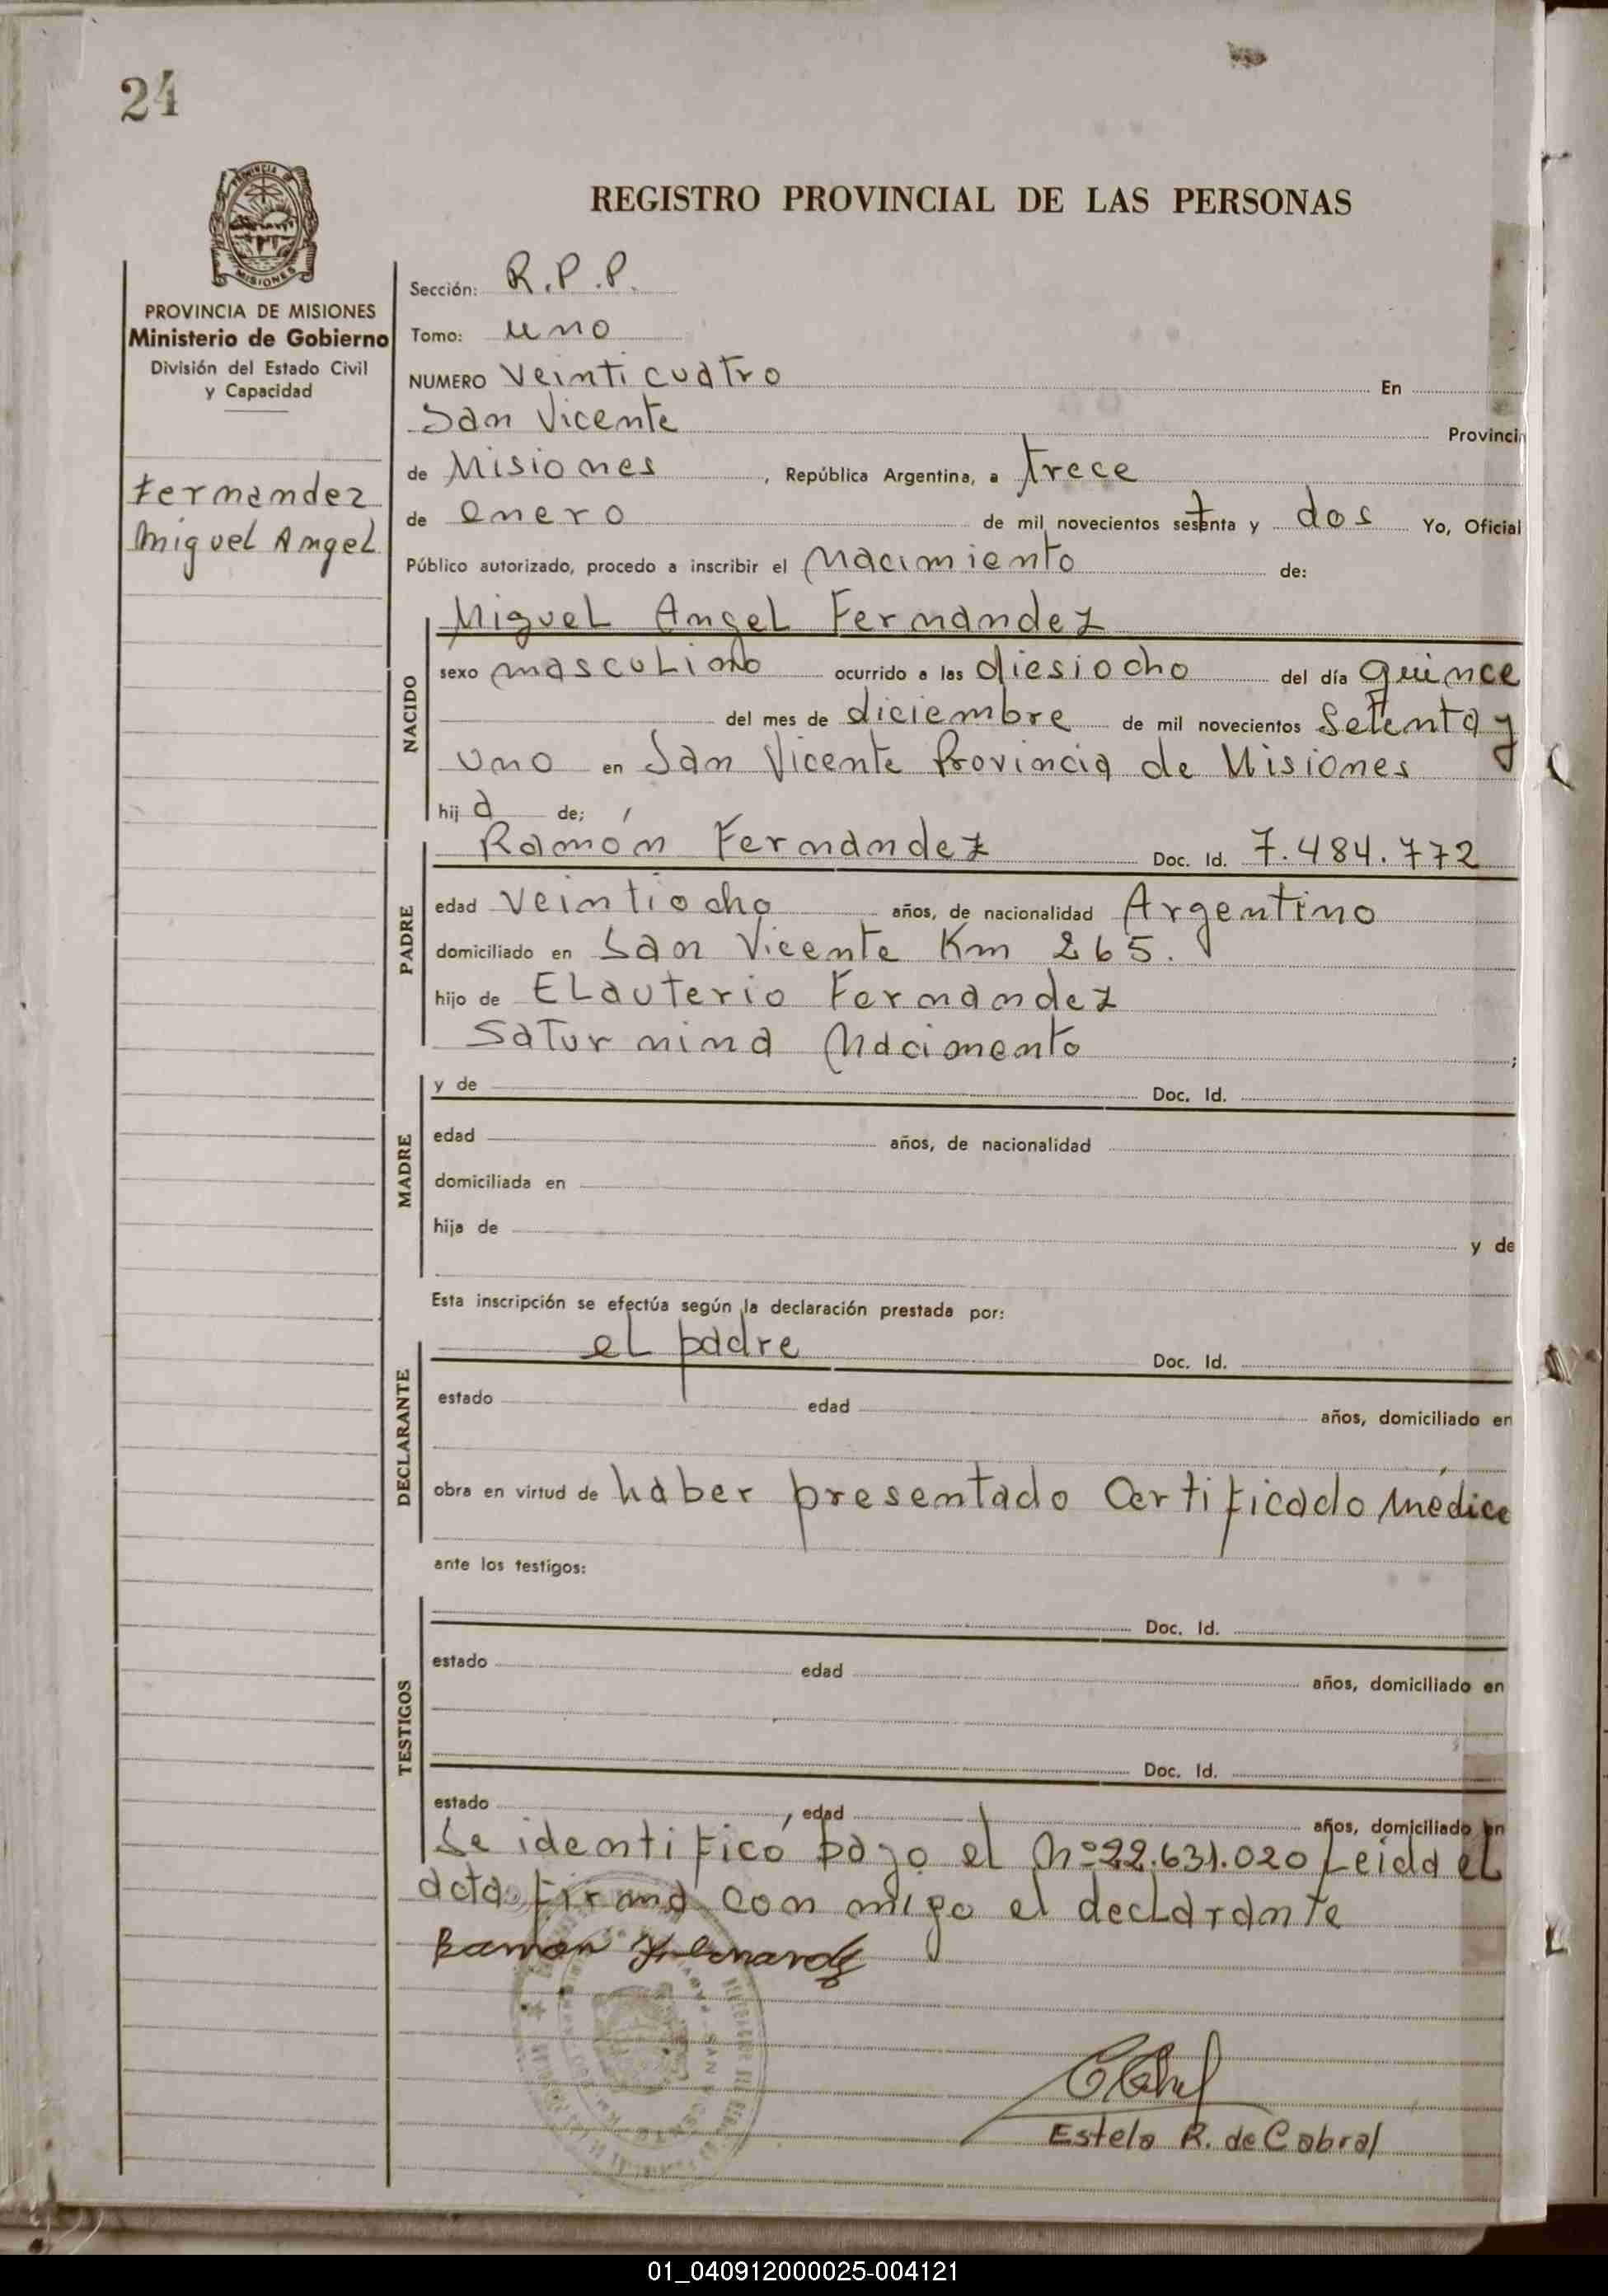 24
REGISTRO PROVINCIAL DE LAS PERSONAS
MISIONES
PROVINCIA DE MISIONES
Ministerio de Gobierno
División del Estado Civil
y Capacidad
Fernandez
Miguel Angel
Sección: R.P.P.
Tomo: uno
NUMERO Veinticuatro En
San Vicente Provinci
de Misiones, República Argentina, a trece
de enero de mil novecientos setenta y dos Yo, Oficial
Público autorizado, procedo a inscribir el Nacimiento de:
NACIDO
Miguel Angel Fernandez
sexo masculino ocurrido a las diesiocho del día quince
del mes de diciembre de mil novecientos Setenta y
uno en San Vicente Provincia de Misiones
hij a de;
PADRE
Ramón Fernandez Doc. Id. 7.484.772
edad veintiocho años, de nacionalidad Argentino
domiciliado en San Vicente Km 265.
hijo de Elauterio Fernandez
Saturnina Nacimento ;
MADRE
y de Doc. Id.
edad años, de nacionalidad
domiciliada en
hija de y de
Esta inscripción se efectúa según la declaración prestada por:
DECLARANTE
el padre Doc. Id.
estado edad años, domiciliado en
obra en virtud de haber presentado Certificado Médico
ante los testigos:
TESTIGOS
Doc. Id.
estado edad años, domiciliado en
Doc. Id.
estado edad años, domiciliado en
Se identificó bajo el Nº 22.631.020 Leida el
acta firma con migo el declarante
Ramon Fernandez
Estela R. de Cabral
01_040912000025-004121